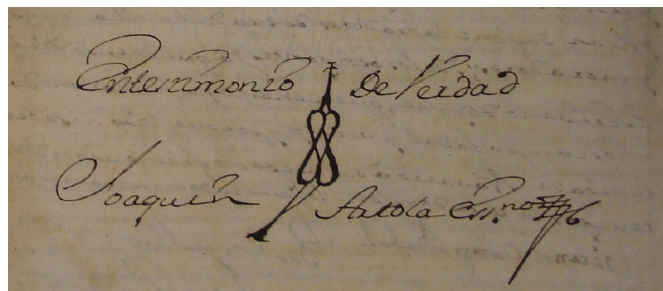 Entestimonio De Verdad
Joaquin Artola Ess.no